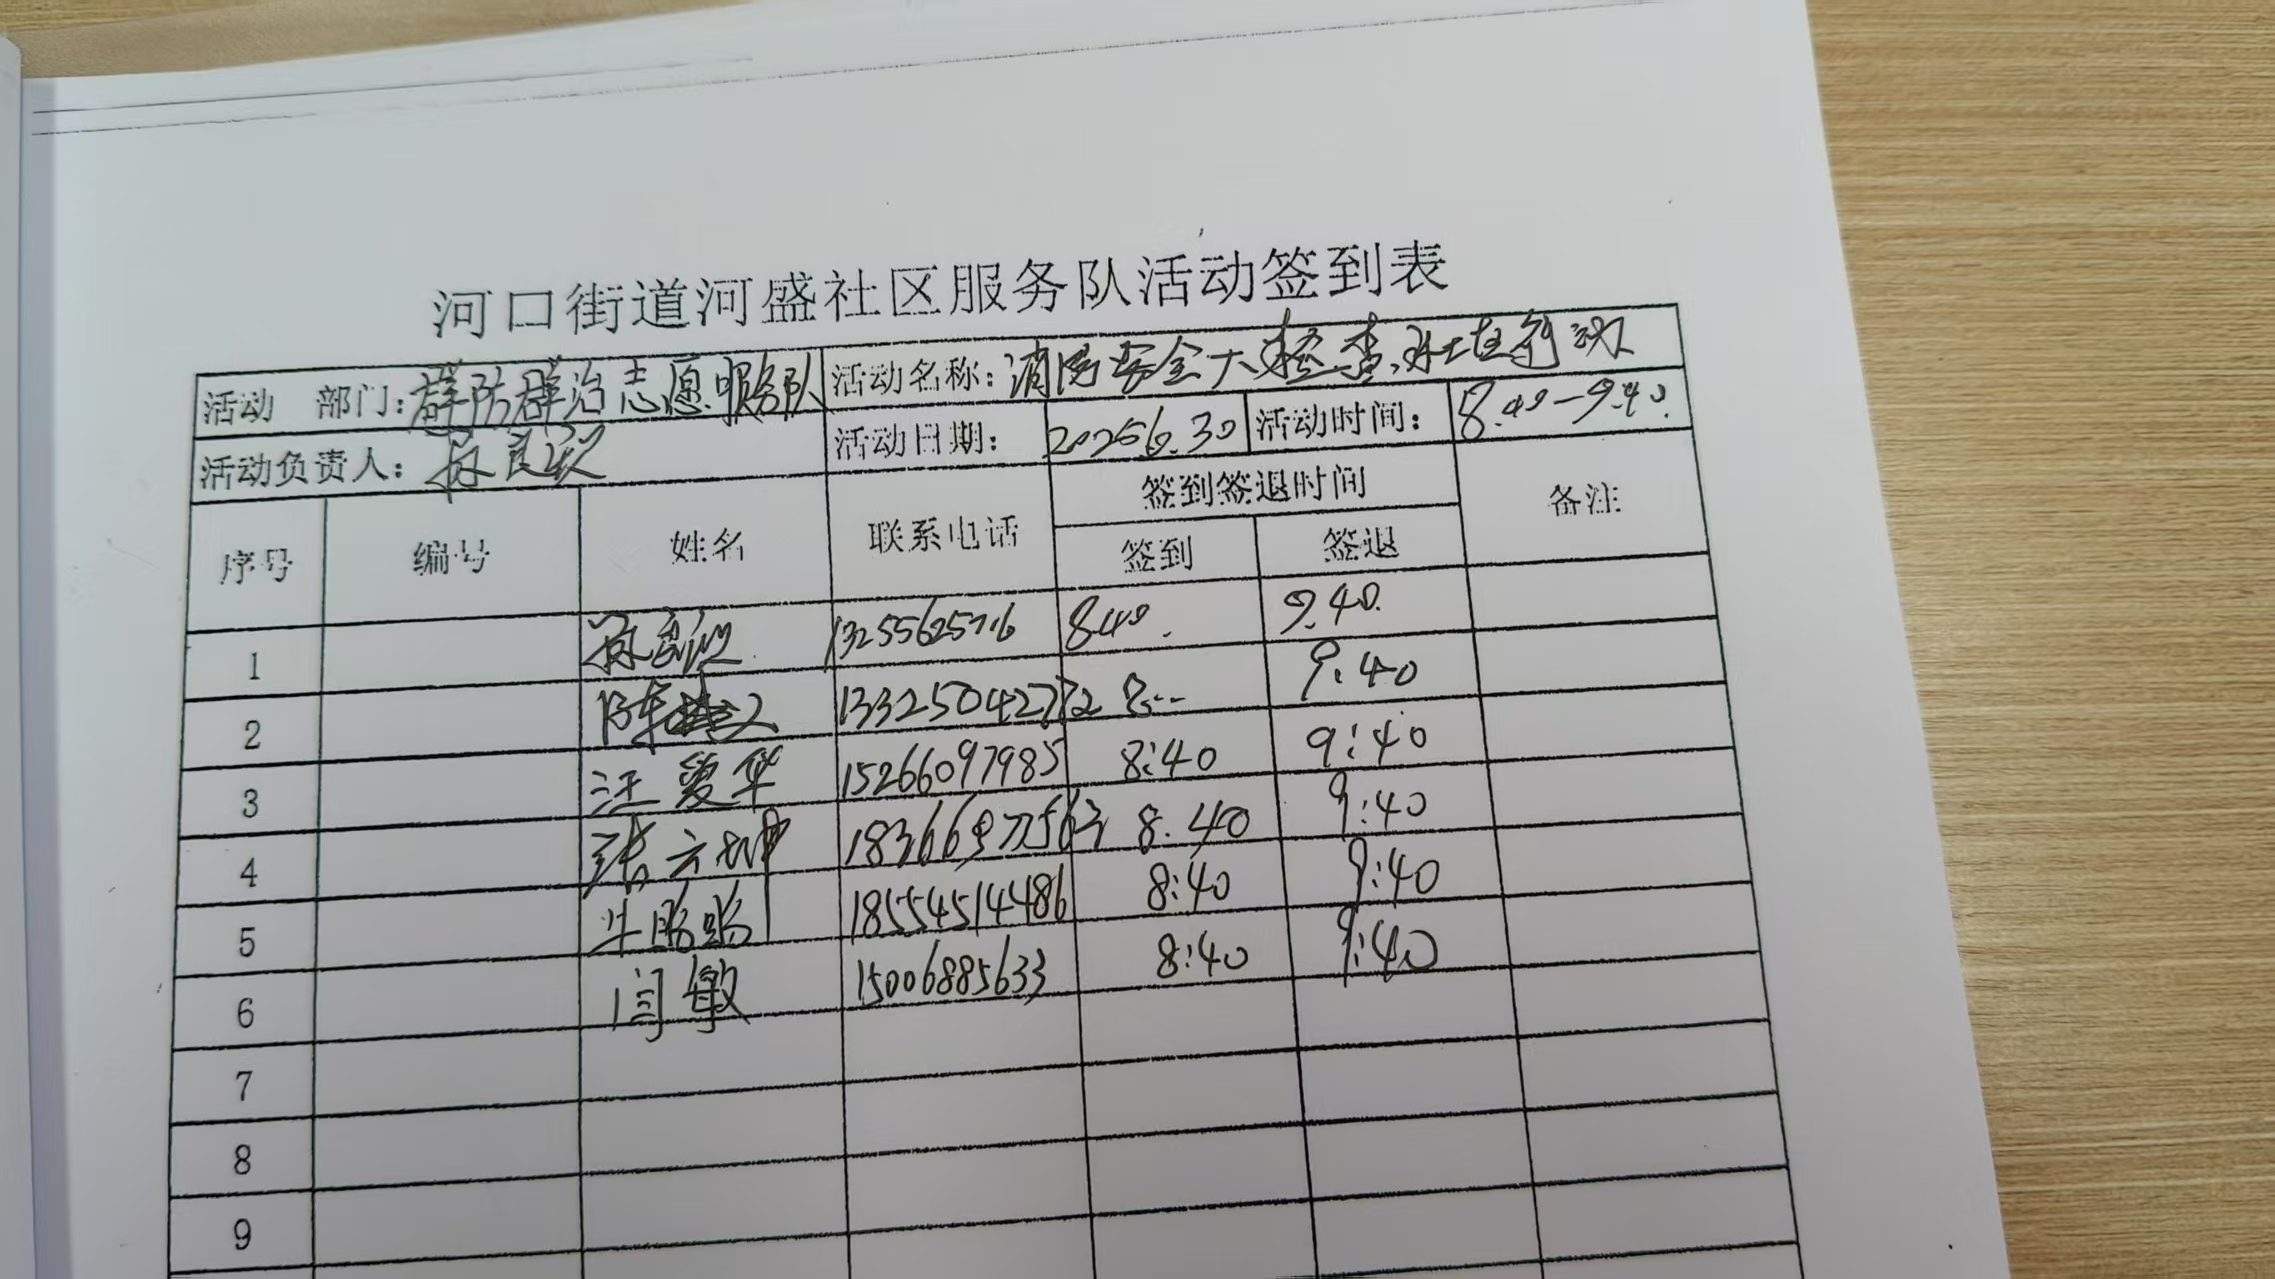 河口街道河盛社区服务队活动签到表
活动 部门: 群防群治志愿服务队 活动名称: 消防安全大检查
活动负责人: 活动日期: 2025.6.30 活动时间: 8.40-9.40.
序号 编号 姓名 联系电话 签到签退时间 备注
签到 签退
1 13255625716 840. 9.40.
2 陈 13325042772 8:-- 9:40
3 汪爱华 15266097985 8:40 9:40
4 张云坤 8.40 9:40
5 牛鹏鹏 18554514486 8:40 9:40
6 闫敏 15006885633 8:40 9:40
7
8
9